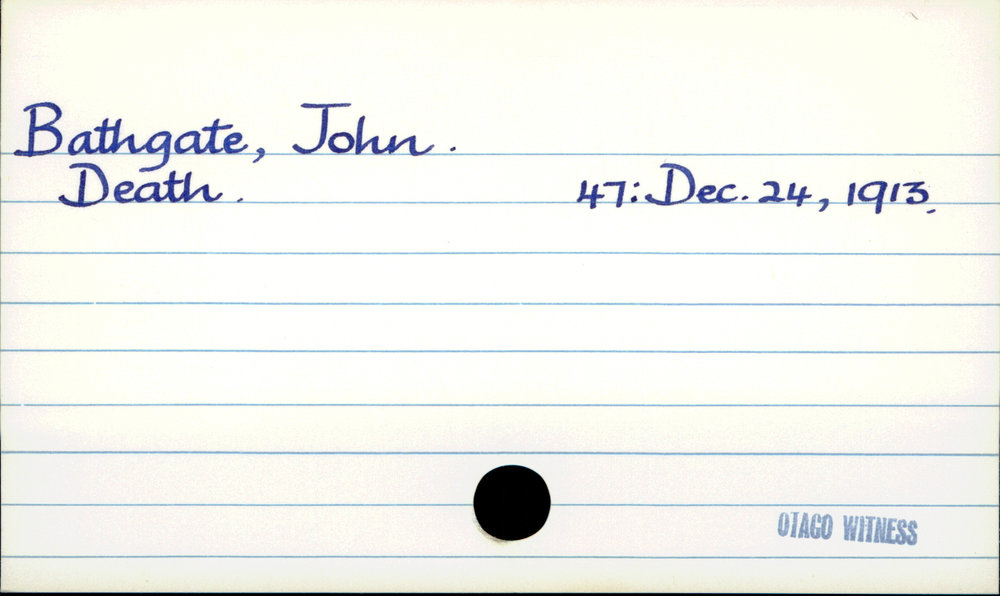 Bathgate, John.
Death. 47: Dec. 24, 1913.
OTAGO WITNESS